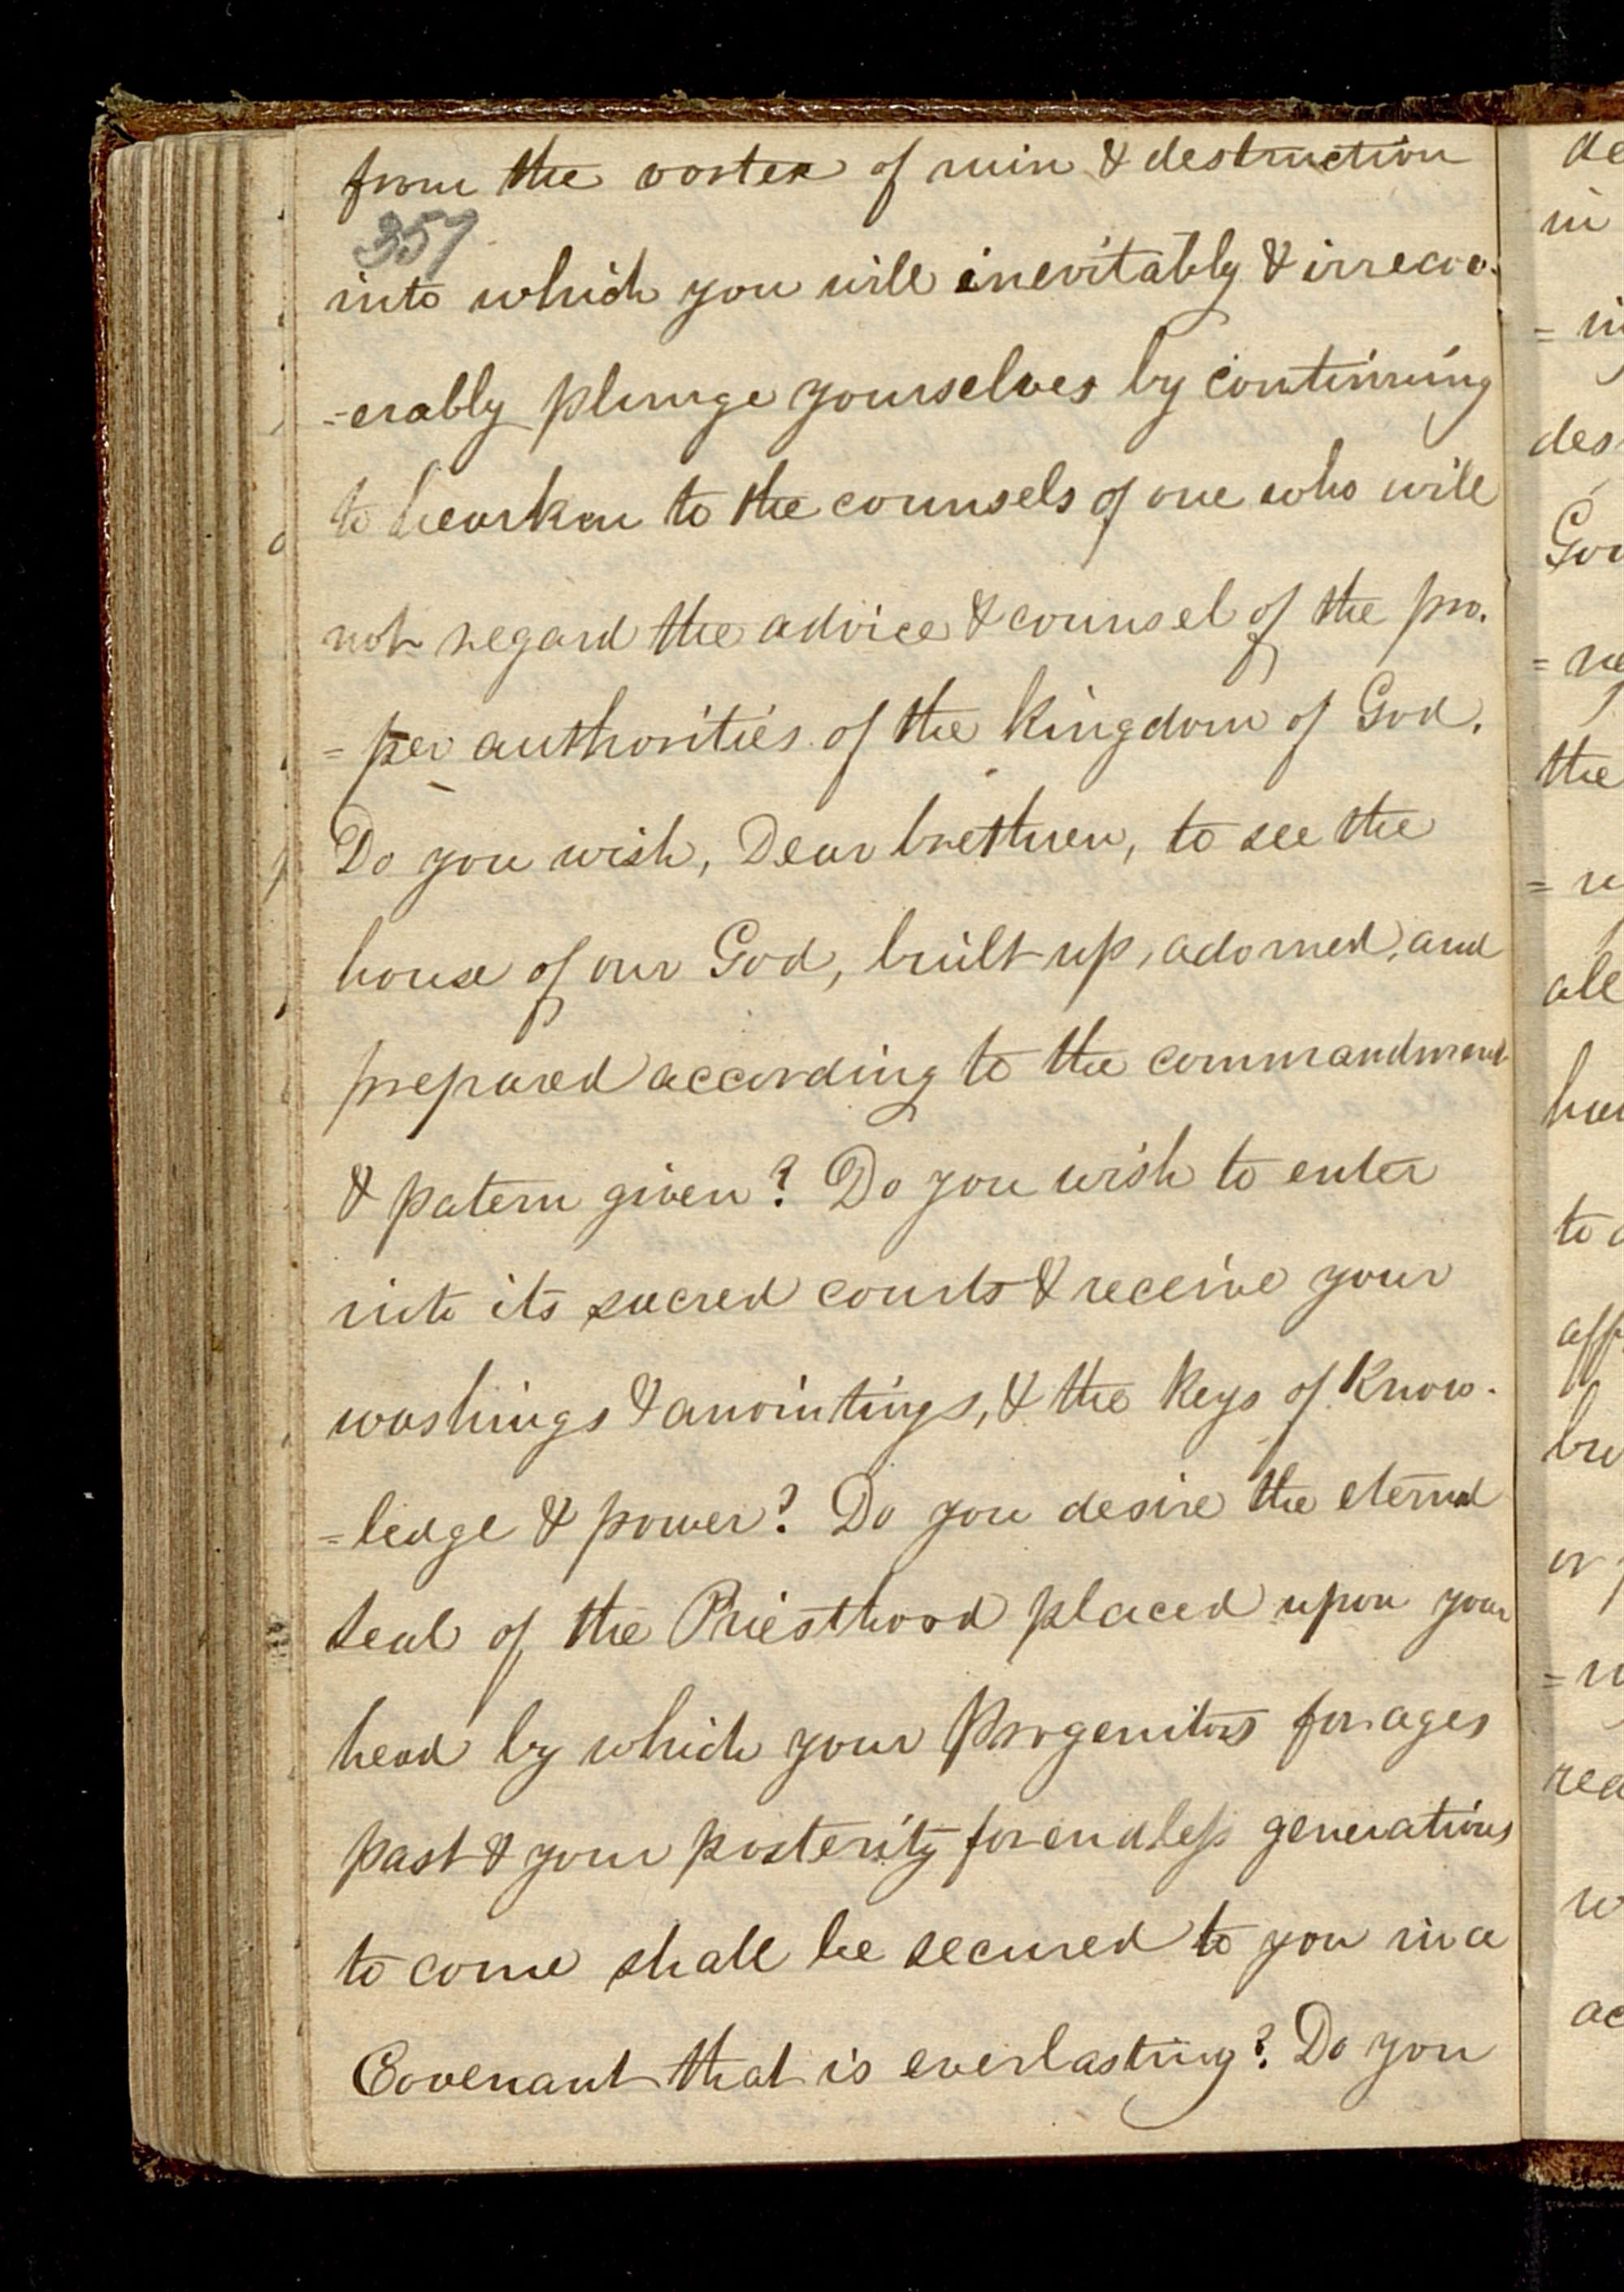 from the vortex of ruin & destruction
357
into which you will inevitably & irrecov-
-erably plunge yourselves by continuing
to hearken to the counsels of one who will
not regard the advice & counsel of the pro-
=per authorities of the kingdom of God.
Do you wish, Dear brethren, to see the
house of our God, built up, adorned, and
prepared according to the commandment
& patern given? Do you wish to enter
into its sacred courts & receive your
washings & anointings, & the keys of know-
=ledge & power? Do you desire the eternal
seal of the Priesthood placed upon your
head by which your progenitors for ages
past & your posterity for endless generations
to come shall be secured to you in a
Covenant that is everlasting? Do you